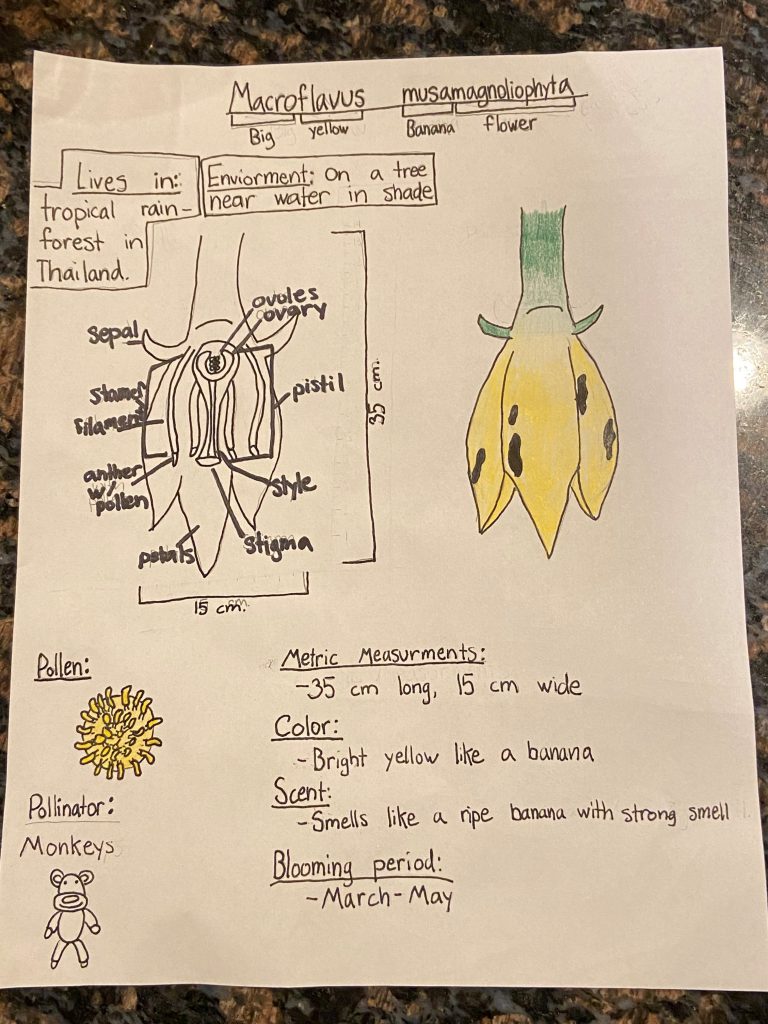 Macroflavus musamagnoliophyta
Big yellow Banana flower
Lives in:
tropical rain-
forest in
Thailand.
Enviorment: On a tree
near water in shade
ovules
ovary
Sepal
Stamen
filament
pistil
anther
w/
pollen
style
petals
Stigma
35 cm.
15 cm.
Pollen:
Pollinator:
Monkeys
Metric Measurments:
-35 cm long, 15 cm wide
Color:
-Bright yellow like a banana
Scent:
-Smells like a ripe banana with strong smell
Blooming period:
-March-May